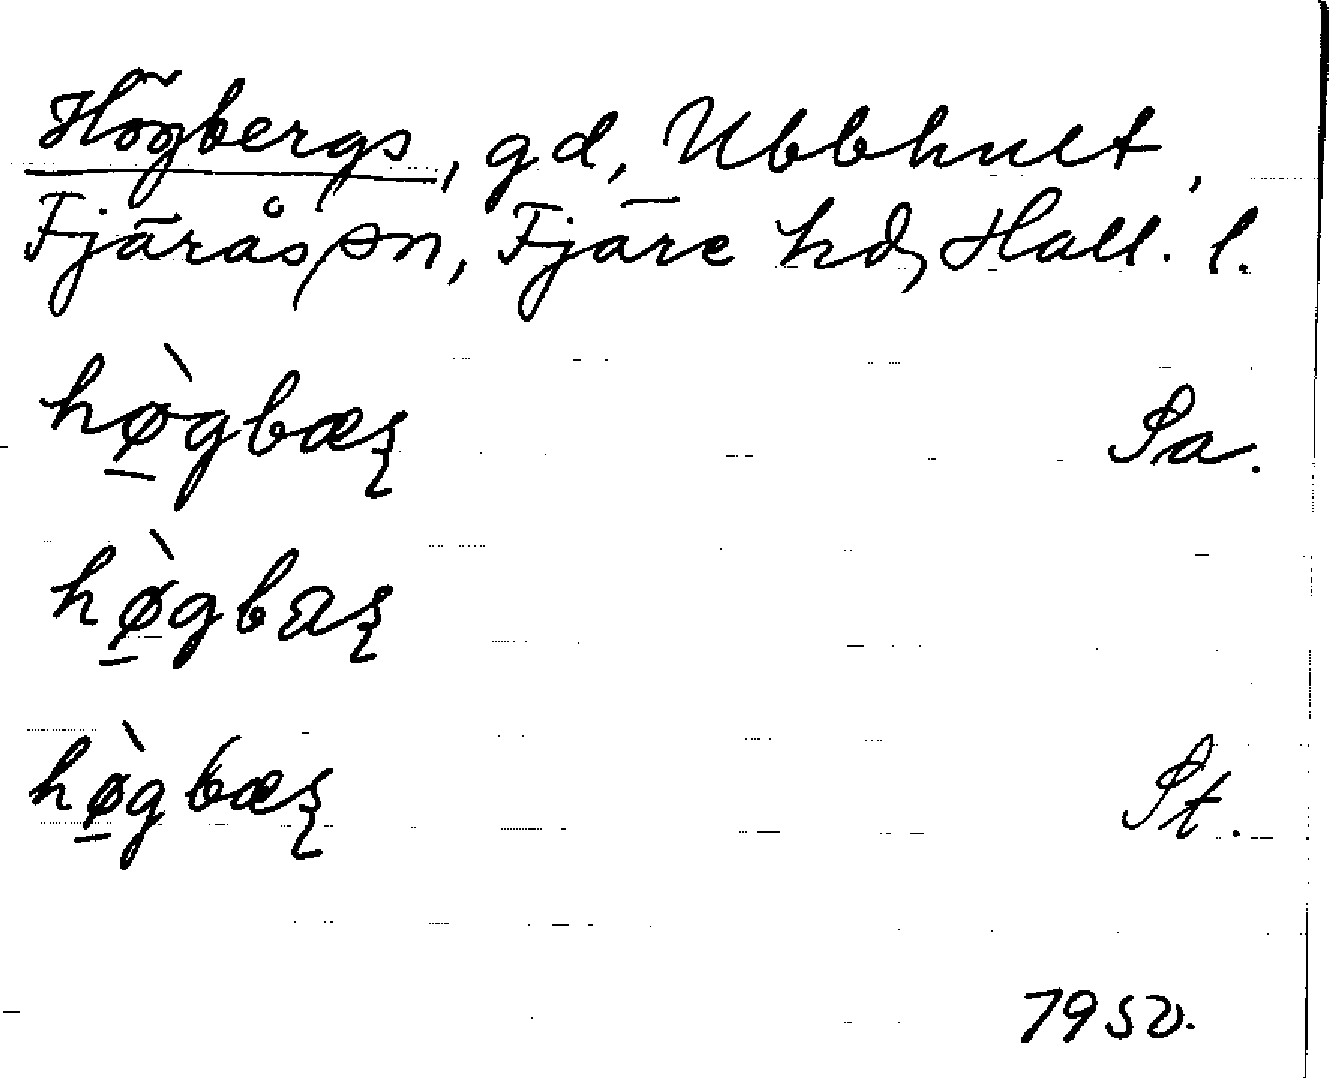 Högbergs, gd, Ubbhult,
Fjärås sn, Fjäre hd, Hall. l.
hø̱̀gbæȿ Sa.
hø̱̀gbaȿ
hø̱̀gbæȿ St.
1950.